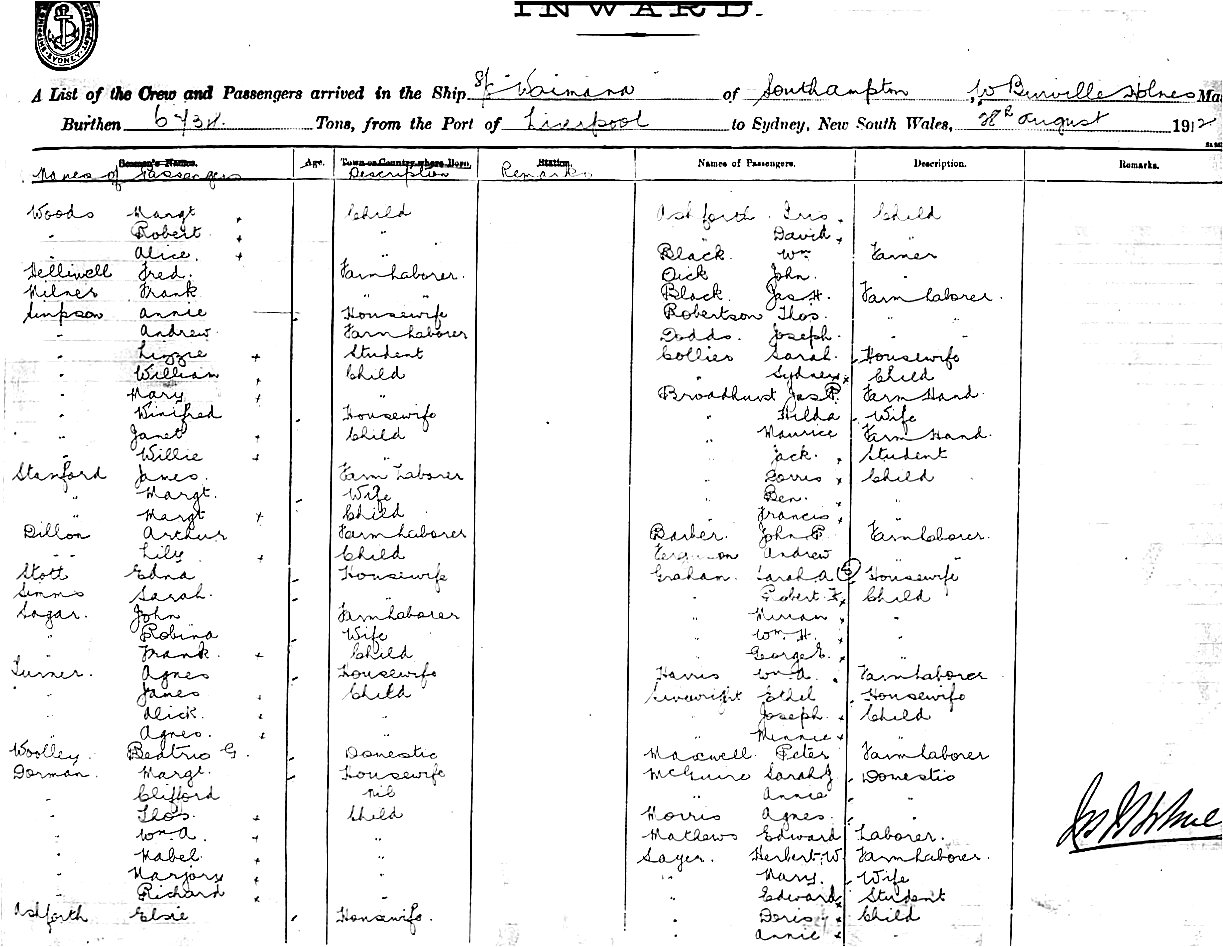 INWARD.
SYDNEY
A List of the Crew and Passengers arrived in the Ship S/S Waimana of Southampton, W Mas
Burthen Tons, from the Port of Liverpool to Sydney, New South Wales, 28th August 1912
Seamen's Names. Age. Town or Country where Born. Station. Names of Passengers. Description. Remarks.
Names of Passengers Description Remarks
Woods Margt Child
" Robert "
" Alice "
Helliwell Fred. Farm Laborer.
Milner Frank " "
Simpson Annie Housewife
" Andrew Farm Laborer
" Lizzie Student
" William Child
" Mary "
" Winifred Housewife
" Janet Child
" Willie "
Stanford James Farm Laborer
" Margt. Wife
" Margt Child
Dillon Arthur Farm Laborer
" Lily Child
Stott Edna Housewife
Simms Sarah. "
Sagar. John Farm Laborer
" Robina Wife
" Frank. Child
Turner. Agnes Housewife
" James Child
" Alick. "
" Agnes. "
Woolley. Beatrice G. Domestic
Dorman. Margt. Housewife
" Clifford nil
" Thos. Child
" Wm. A. "
" Mabel. "
" Marjory "
" Richard "
Ashforth Elsie Housewife.
Ashforth Iris Child
" David "
Black Wm Farmer
Dick John. "
Black. Jas H. Farm Laborer.
Robertson Thos. " "
Dodds. Joseph. " "
Collies Sarah. Housewife
" Sydney Child
Broadhurst Jas P. Farm Hand
" Hilda Wife
" Maurice Farm Hand.
" Jack. Student
" Child
" Ben. "
" Francis "
Barber. John P. Farm Laborer.
Andrew " "
Graham. Sarah A (5) Housewife
" Robert Child
" Miriam "
" Wm. H. "
" George E. "
Harris Wm A. Farm Laborer
Ethel Housewife
" Joseph Child
" Minnie "
Maxwell Peter Farm Laborer
McGuire Sarah J Domestic
" Annie "
Morris Agnes. "
Mathews Edward Laborer.
Sayer. Herbert. W Farm Laborer.
" Mary. Wife
" Edward Student
" Doris Child
" Annie "